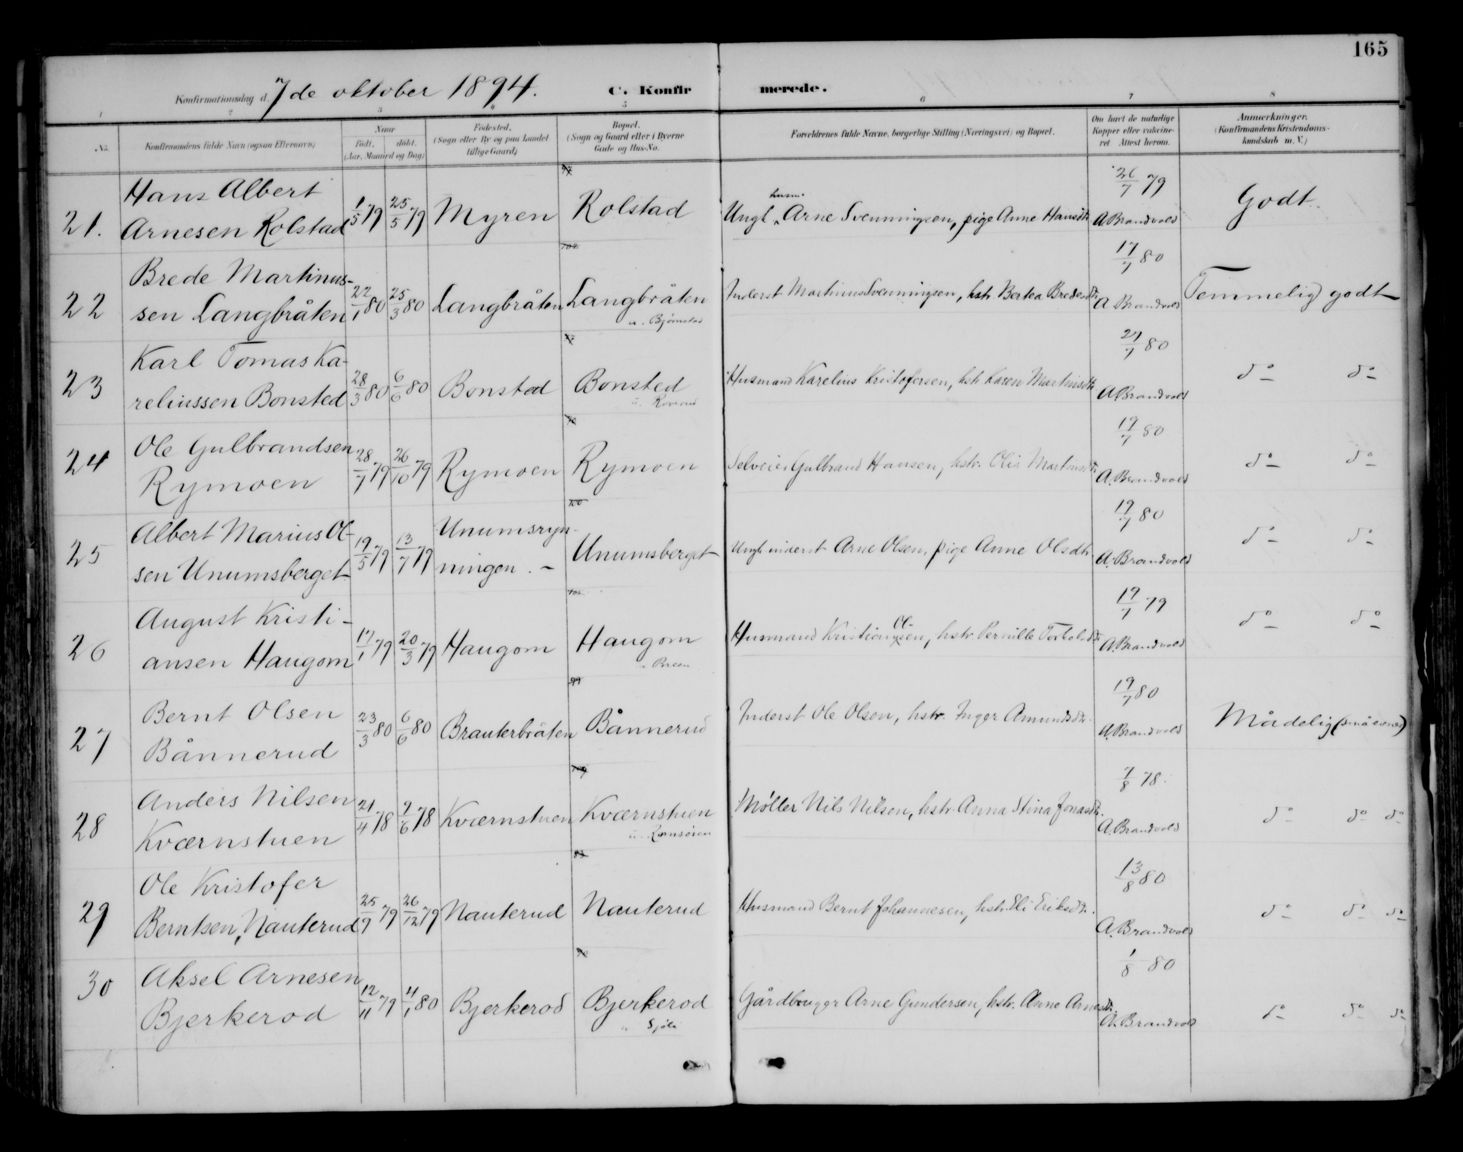 165
Konfirmationsdag d. 7de oktober 1894. C. Konfirmerede.
1 2 3 4 5 6 7 8
No. Konfirmandens fulde Navn (ogsaa Efternavn) Naar Født, døbt. (Aar, Maaned og Dag) Fødested. (Sogn eller By og paa Landet tillige Gaard) Bopæl. (Sogn og Gaard eller i Byerne Gade og Hus-No. Forældrenes fulde Navne, borgerlige Stilling (Næringsvei) og Bopæl. Om havt de naturlige Kopper eller vaccineret Attest herom. Anmærkninger. (Konfirmandens Kristendomskundskab m. V.)
21. Hans Albert Arnesen Rolstad 1/5 79 25/5 79 Myren Rolstad Ungk. husm. Arne Svenningsen, pige Anne Hansdtr 26/7 79 A. Brandvold Godt.
22 Brede Martinussen Langbråten 22/1 80 25/3 80 Langbråten Langbråten u. Bjørnstad Inderst Martinus Svenningsen, hstr Bertea Bredesdtr 17/7 80 A. Brandvold Temmelig godt
23 Karl Tomas Kareliussen Bonsted 28/3 80 6/6 80 Bonsted Bonsted u. Husmand Karelius Kristofersen, hstr Karen Martinsdtr 27/7 80 A. Brandvold do do
24 Ole Gulbrandsen Rymoen 28/7 79 26/10 79 Rymoen Rymoen Selveier Gulbrand Hansen, hstr. Olia Martinsdtr 19/7 80 A. Brandvold do do
25 Albert Marius Olsen Unumsberget 19/5 79 13/7 79 Unumsrynningen. Unumsberget Ungk inderst Arne Olsen, pige Anne Olsdtr 19/7 80 A. Brandvold do do
26 August Kristiansen Haugom 17/1 79 20/3 79 Haugom Haugom Husmand Kristian Olsen, hstr Pernille 19/7 79 A. Brandvold do do
27 Bernt Olsen Bånnerud 23/3 80 6/6 80 Brauterbråten Bånnerud Inderst Ole Olsen, hstr. Inger Amundsdtr. 19/7 80 A. Brandvold Mådelig (små evner)
28 Anders Nilsen Kværnstuen 21/4 78 9/6 78 Kværnstuen Kværnstuen Møller Nils Nilsen, hstr Anna Stina Jonasdtr. 7/8 78. A. Brandvold do do do
29 Ole Kristofer Berntsen, Nauterud 25/9 79 26/12 79 Nauterud Nauterud Husmand Bernt Johannesen, hstr. Eli Eriksdtr. 13/8 80 A. Brandvold do do do
30 Aksel Arnesen Bjerkerod 12/11 79 4/1 80 Bjerkerod Bjerkerod Gårdbruger Arne Gundersen, hstr. Anne Arnesdtr. 1/8 80 A. Brandvold do do do